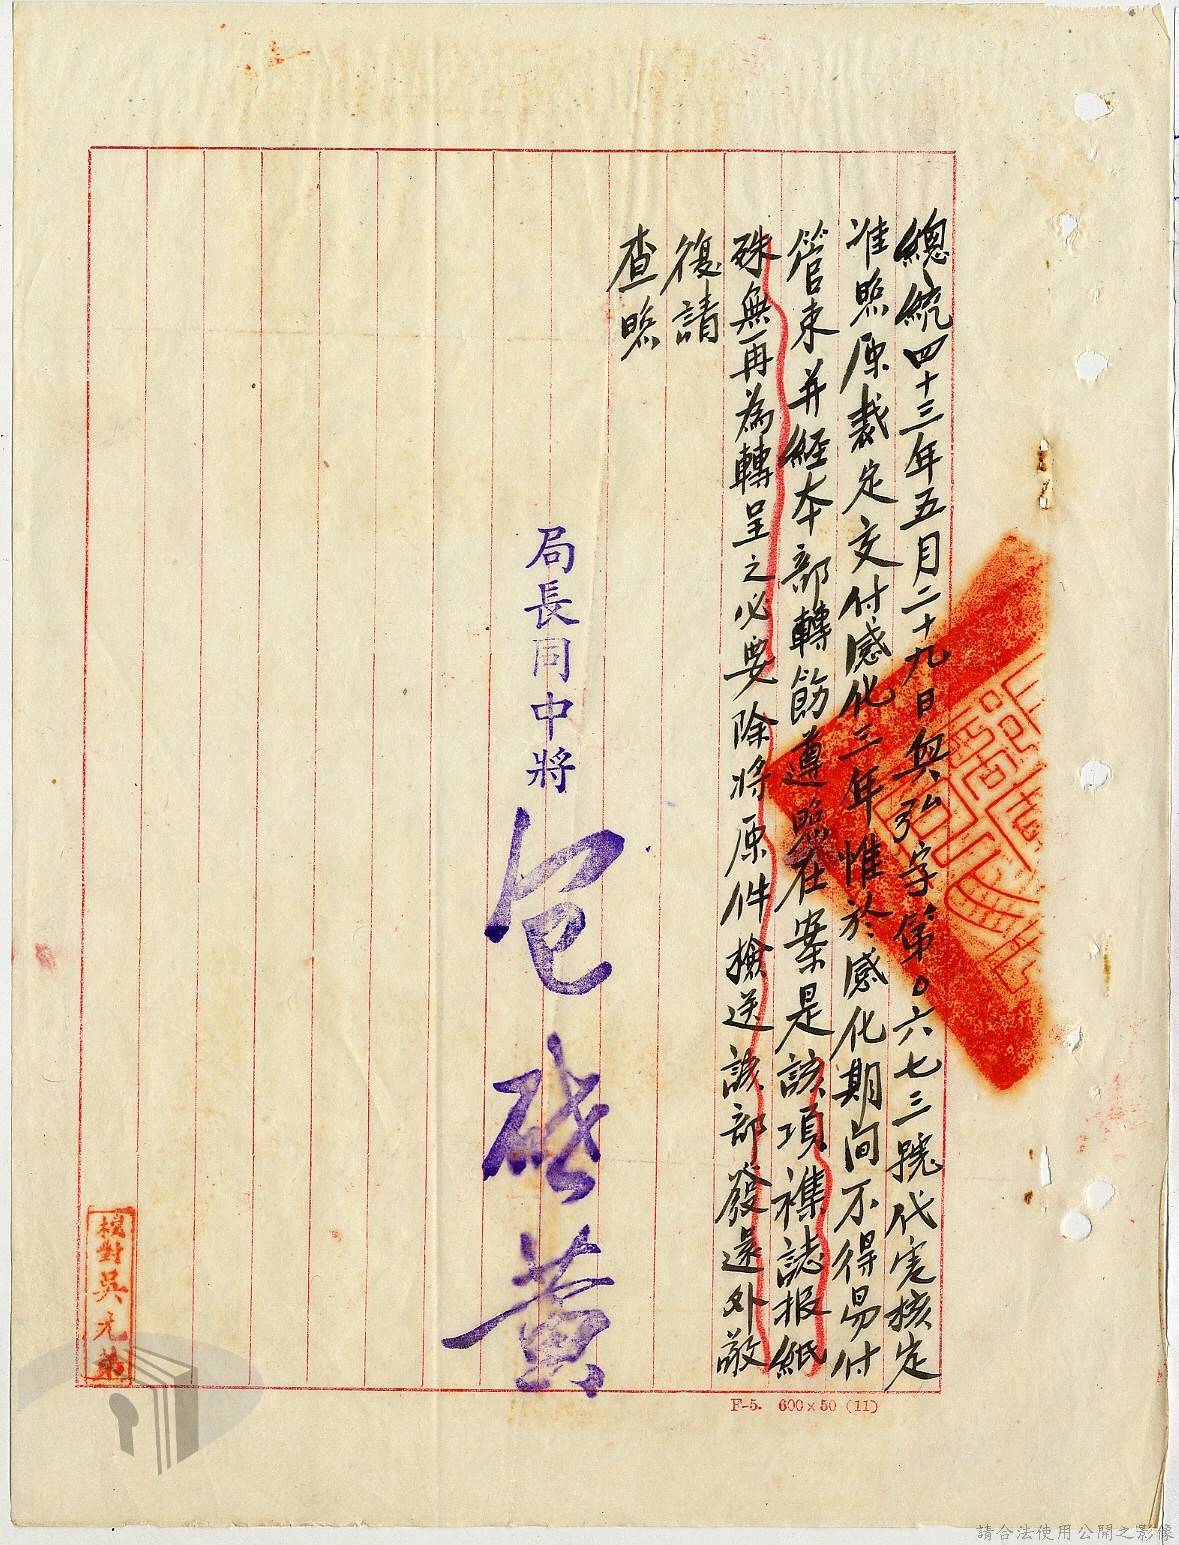 總統四十三年五月二十九日與弘字第〇六七三號代電核定
准照原裁定交付感化三年惟於感化期间不得易付
管束并經本部轉飭遵照在案是該項襍誌报紙
殊無再為轉呈之必要除將原件檢送該部發還外敬
復請
查照
局長同中將
包啟黃
校對吳元弟
F-5. 600×50 (11)
請合法使用公開之影像